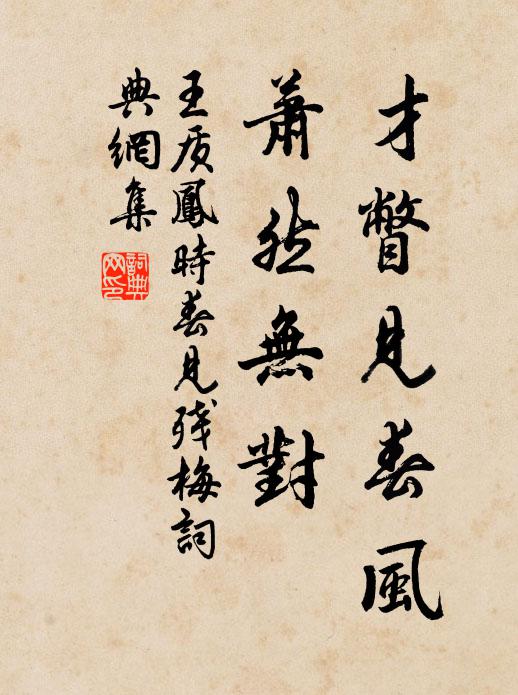 才瞥見春風
蕭然無對
王质鳳時春見殘梅詞
典網集
詞典网印